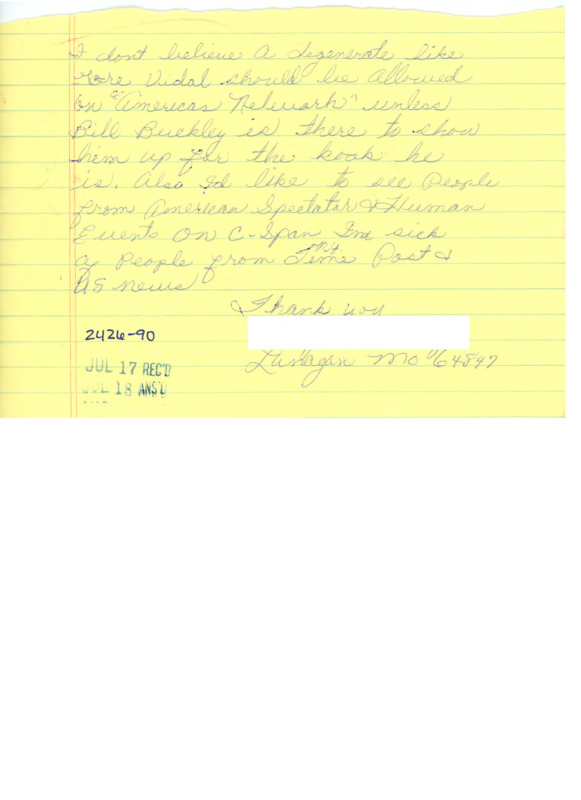 I dont believe A degenerate like
Gore Vidal should be allowed
on "Americas Network" unless
Bill Buckley is there to show
him up for the kook he
is. Also Id like to see People
from American Spectator & Human
Events on C-Span Im sick
of People from Time Post &
US news
Thank you
2426-90
JUL 17 REC'D
JUL 18 ANS'D
Mo 64847